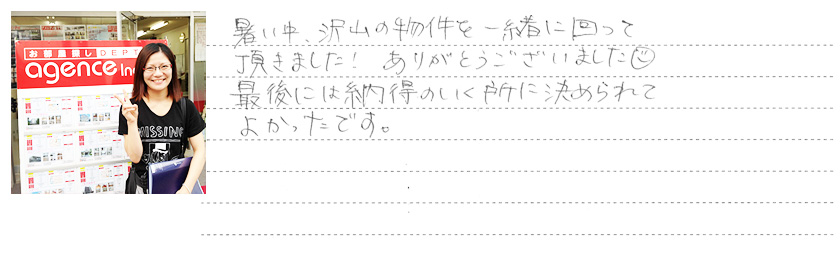 お部屋探しDEPT
agence inc
MISSING
暑い中、沢山の物件を一緒に回って
頂きました! ありがとうございました☺
最後には納得のいく所に決められて
よかったです。